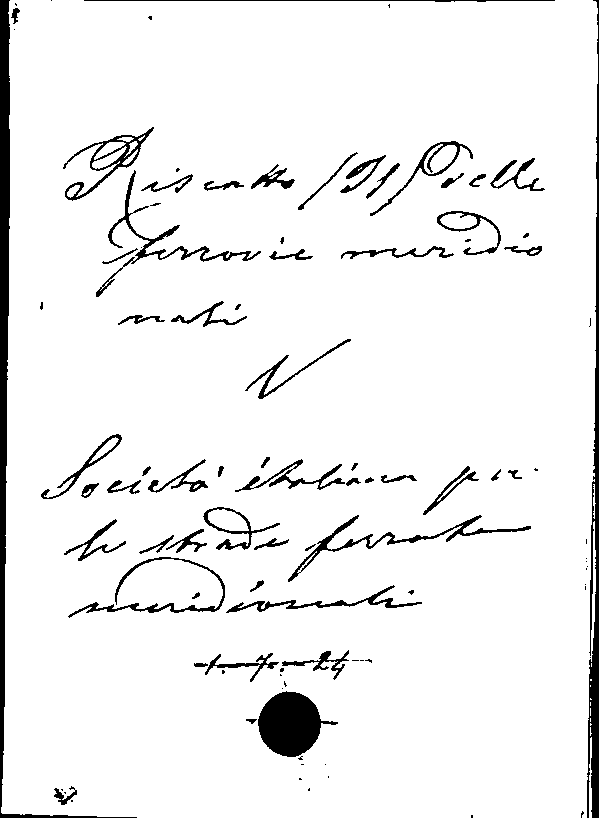 Riscatto (Il) delle
ferrovie meridio
nali
V
Società italiana per
le strade ferrate
meridionali
1.-7.-24